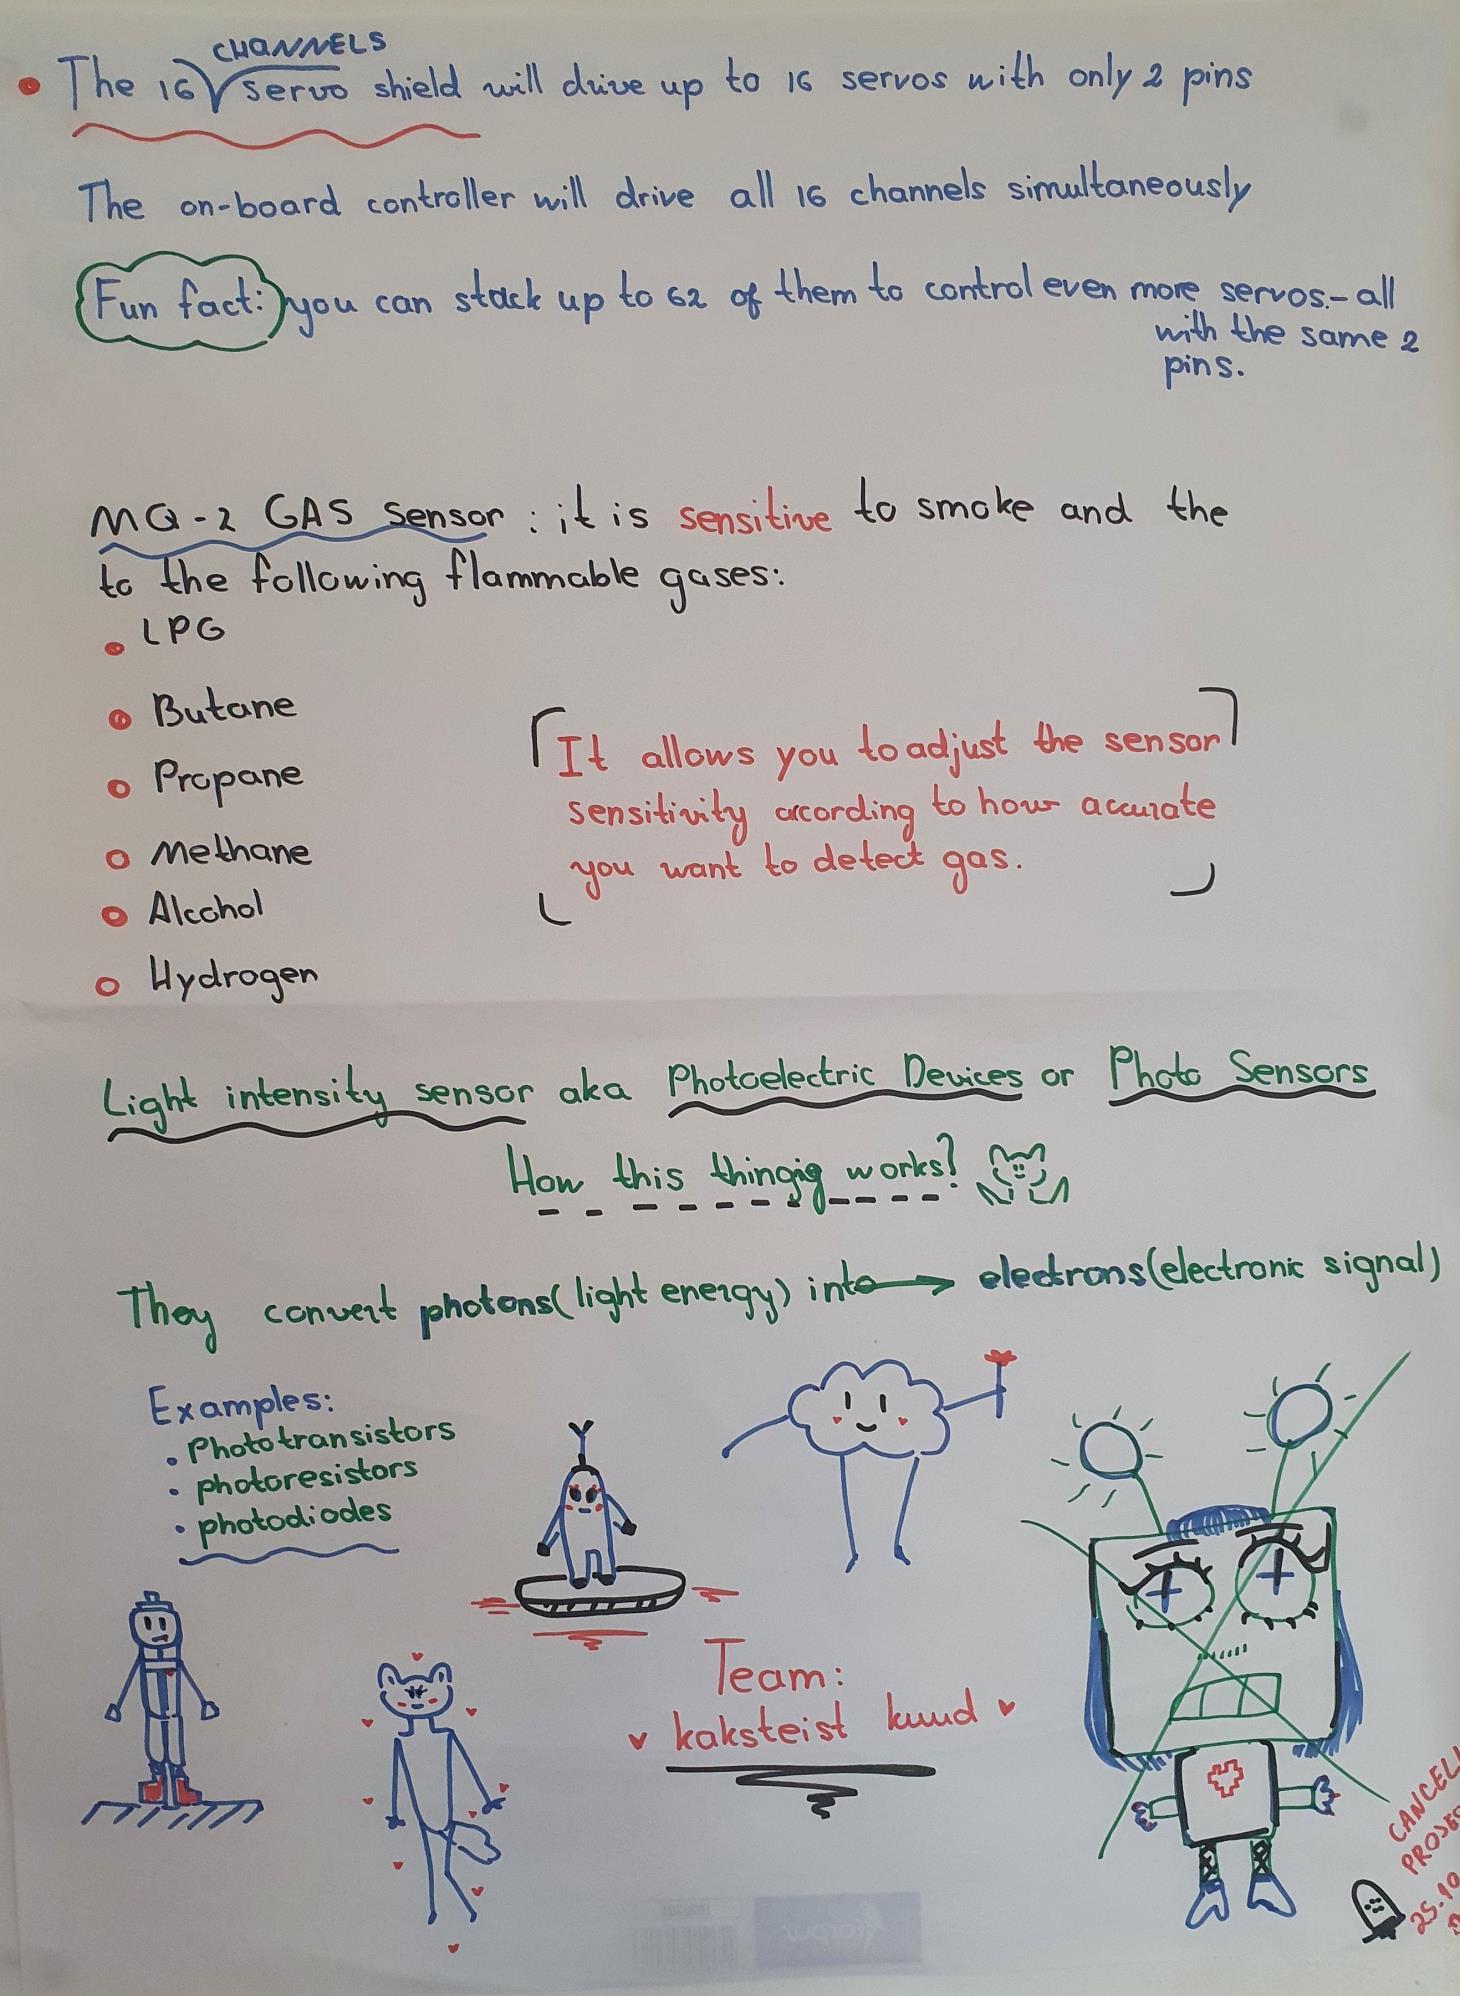 CHANNELS
The 16 servo shield will drive up to 16 servos with only 2 pins
The on-board controller will drive all 16 channels simultaneously
Fun fact: you can stack up to 62 of them to control even more servos.- all
with the same 2
pins.
MQ-2 GAS sensor : it is sensitive to smoke and the
to the following flammable gases:
LPG
Butane
Propane
Methane
Alcohol
Hydrogen
It allows you to adjust the sensor
sensitivity according to how accurate
you want to detect gas.
Light intensity sensor aka Photoelectric Devices or Photo Sensors
How this thingig works?
They convert photons(light energy) into → electrons(electronic signal)
Examples:
• Phototransistors
• photoresistors
• photodiodes
Team:
kaksteist kuud
CANCELL
PROJEC
25.10